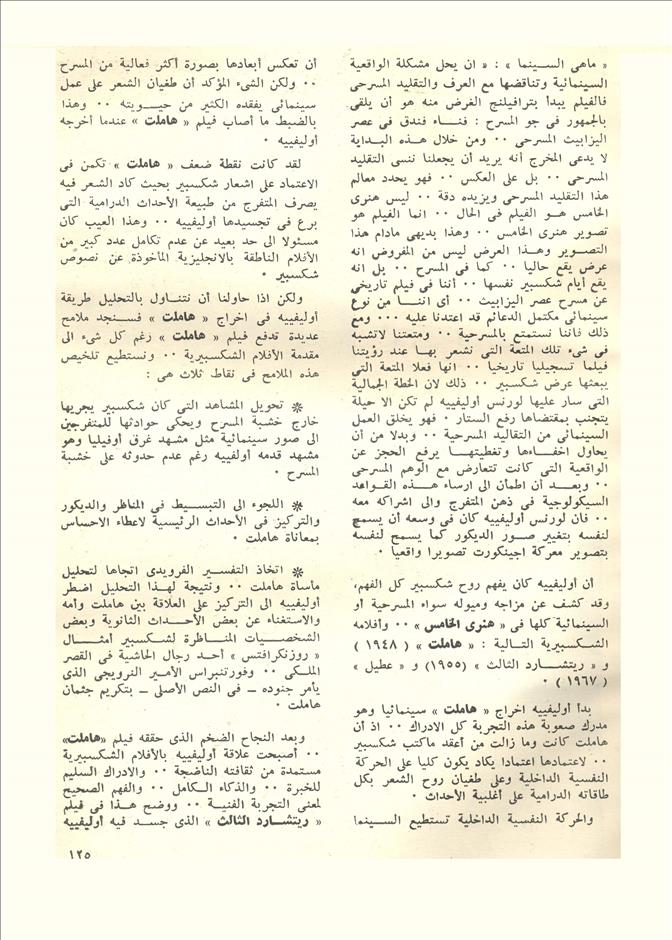 « ماهى السـينما » : « ان يحل مشكلة الواقعية
السينمائية وتناقضها مع العرف والتقليد المسرحى
فالفيلم يبدأ بترافيلنج الغرض منه هو أن يلقى
بالجمهور فى جو المسرح : فنــاء فندق فى عصر
اليزابيث المسرحى ٠٠ ومن خلال هــذه البـداية
لا يدعى المخرج أنه يريد أن يجعلنا ننسى التقليد
المسرحى ٠٠ بل على العكس ٠٠ فهو يحدد معالم
هذا التقليد المسرحى ويزيده دقة ٠٠ ليس هنرى
الخامس هــو الفيلم فى الحال ٠٠ انما الفيلم هو
تصوير هنرى الخامس ٠٠ وهذا بديهى مادام هذا
التصــوير وهــذا العرض ليس من المفروض انه
عرض يقع حاليا ٠٠ كما فى المسرح ٠٠ بل انه
يقع أيام شكسبير نفسها ٠٠ أننا فى فيلم تاريخى
عن مسرح عصر اليزابيث ٠٠ أى اننــا من نوع
سينمائى مكتمل الدعائم قد اعتدنا عليه ٠٠٠ ومع
ذلك فاننا نستمتع بالمسرحية ٠٠ ومتعتنا لاتشبه
فى شىء تلك المتعة التى نشعر بهـا عند رؤيتنا
فيلما تسجيليا تاريخيا ٠٠ انها فعلا المتعة التى
يبعثها عرض شكسبير ٠٠ ذلك لان الخطة الجمالية
التى سار عليها لورنس أوليفييه لم تكن الا حيلة
يتجنب بمقتضاها رفع الستار ٠ فهو يخلق العمل
السينمائى من التقاليد المسرحية ٠٠ وبدلا من أن
يحاول اخفــاءها وتغطيتهــا يرفع الحجز عن
الواقعية التى كانت تتعارض مع الوهم المسرحى
٠٠ وبعــد أن اطمأن الى ارساء هــذه القــواعد
السيكولوجية فى ذهن المتفرج والى اشراكه معه
٠٠ فان لورنس أوليفييه كان فى وسعه أن يسمح
لنفسه بتغيير صــور الديكور كما يسمح لنفسه
بتصوير معركة اجينكورت تصويرا واقعيا ٠
أن أوليفييه كان يفهم روح شكسبير كل الفهم،
وقد كشف عن مزاجه وميوله سواء المسرحية أو
السينمائية كلها فى « هنرى الخامس » ٠٠ وأفلامه
الشـكسبيرية التـالية : « هاملت » ( ١٩٤٨ )
و « ريتشـــارد الثالث » (١٩٥٥) و « عطيل »
( ١٩٦٧ ) ٠
بدأ أوليفييه اخراج « هاملت » سينمائيا وهو
مدرك صعوبة هذه التجربة كل الادراك ٠٠ اذ أن
هاملت كانت وما زالت من أعقد ماكتب شكسبير
٠٠ لاعتمادها اعتمادا يكاد يكون كليا على الحركة
النفسية الداخلية وعلى طغيان روح الشعر بكل
طاقاته الدرامية على أغلبية الأحداث ٠
والحركة النفسية الداخلية تستطيع الســينما
أن تعكس أبعادها بصورة أكثر فعالية من المسرح
٠٠ ولكن الشىء المؤكد أن طغيان الشعر على عمل
سينمائى يفقده الكثير من حيــويته ٠٠ وهذا
بالضبط ما أصاب فيلم « هاملت » عندما أخرجه
أوليفييه ٠
لقد كانت نقطة ضعف « هاملت » تكمن فى
الاعتماد على اشعار شكسبير بحيث كاد الشعر فيه
يصرف المتفرج من طبيعة الأحداث الدرامية التى
برع فى تجسيدها أوليفييه ٠٠ وهذا العيب كان
مسئولا الى حد بعيد عن عدم تكامل عدد كبير من
الأفلام الناطقة بالانجليزية المأخوذة عن نصوص
شكسبير ٠
ولكن اذا حاولنا أن نتنــاول بالتحليل طريقة
أوليفييه فى اخراج « هاملت » فسـنجد ملامح
عديدة تدفع فيلم « هاملت » رغم كل شىء الى
مقدمة الأفلام الشكسبيرية ٠٠ ونستطيع تلخيص
هذه الملامح فى نقاط ثلاث هى :
※ تحويل المشاهد التى كان شكسبير يجريها
خارج خشبة المسرح ويحكى حوادثها للمتفرجين
الى صور سينمائية مثل مشهد غرق أوفيليا وهو
مشهد قدمه أولفييه رغم عدم حدوثه على خشبة
المسرح ٠
※ اللجوء الى التبسـيط فى المناظر والديكور
والتركيز فى الأحداث الرئيسية لاعطاء الاحساس
بمعاناة هاملت ٠
※ اتخاذ التفسـير الفرويدى اتجاها لتحليل
مأساة هاملت ٠٠ ونتيجة لهـذا التحليل اضطر
أوليفييه الى التركيز على العلاقة بين هاملت وأمه
والاستغناء عن بعض الأحــداث الثانوية وبعض
الشخصــيات المنــاظرة لشكسبير أمثــال
« روزنكرافتس » أحــد رجال الحاشية فى القصر
الملــكى ٠٠ وفورتنبراس الأمـير النرويجى الذى
يأمر جنوده – فى النص الأصلى – بتكريم جثمان
هاملت ٠
وبعد النجاح الضخم الذى حققه فيلم «هاملت»
٠٠ أصبحت علاقة أوليفييه بالأفلام الشكسبيرية
مستمدة من ثقافته الناضجة ٠٠ والادراك السليم
للخبرة ٠٠ والذكاء الـكامل ٠٠ والفهم الصحيح
لمعنى التجربة الفنيــة ٠٠ ووضح هــذا فى فيلم
« ريتشــارد الثالث » الذى جســد فيه أوليفييه
١٢٥